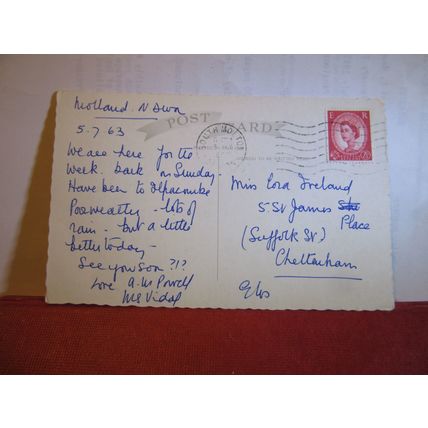 Molland. N Dvon
5.7.63
We are here for the
week. back on Sunday.
Have been to Ilfracombe
Poor weather - lots of
rain - but a little
better today -
See you soon ?!?
Love A.M Powell
POST CARD
SOUTH MOLTON
E R
Miss Cora Ireland
5. St James
Place
(Suffolk St.)
Cheltenham
Glos